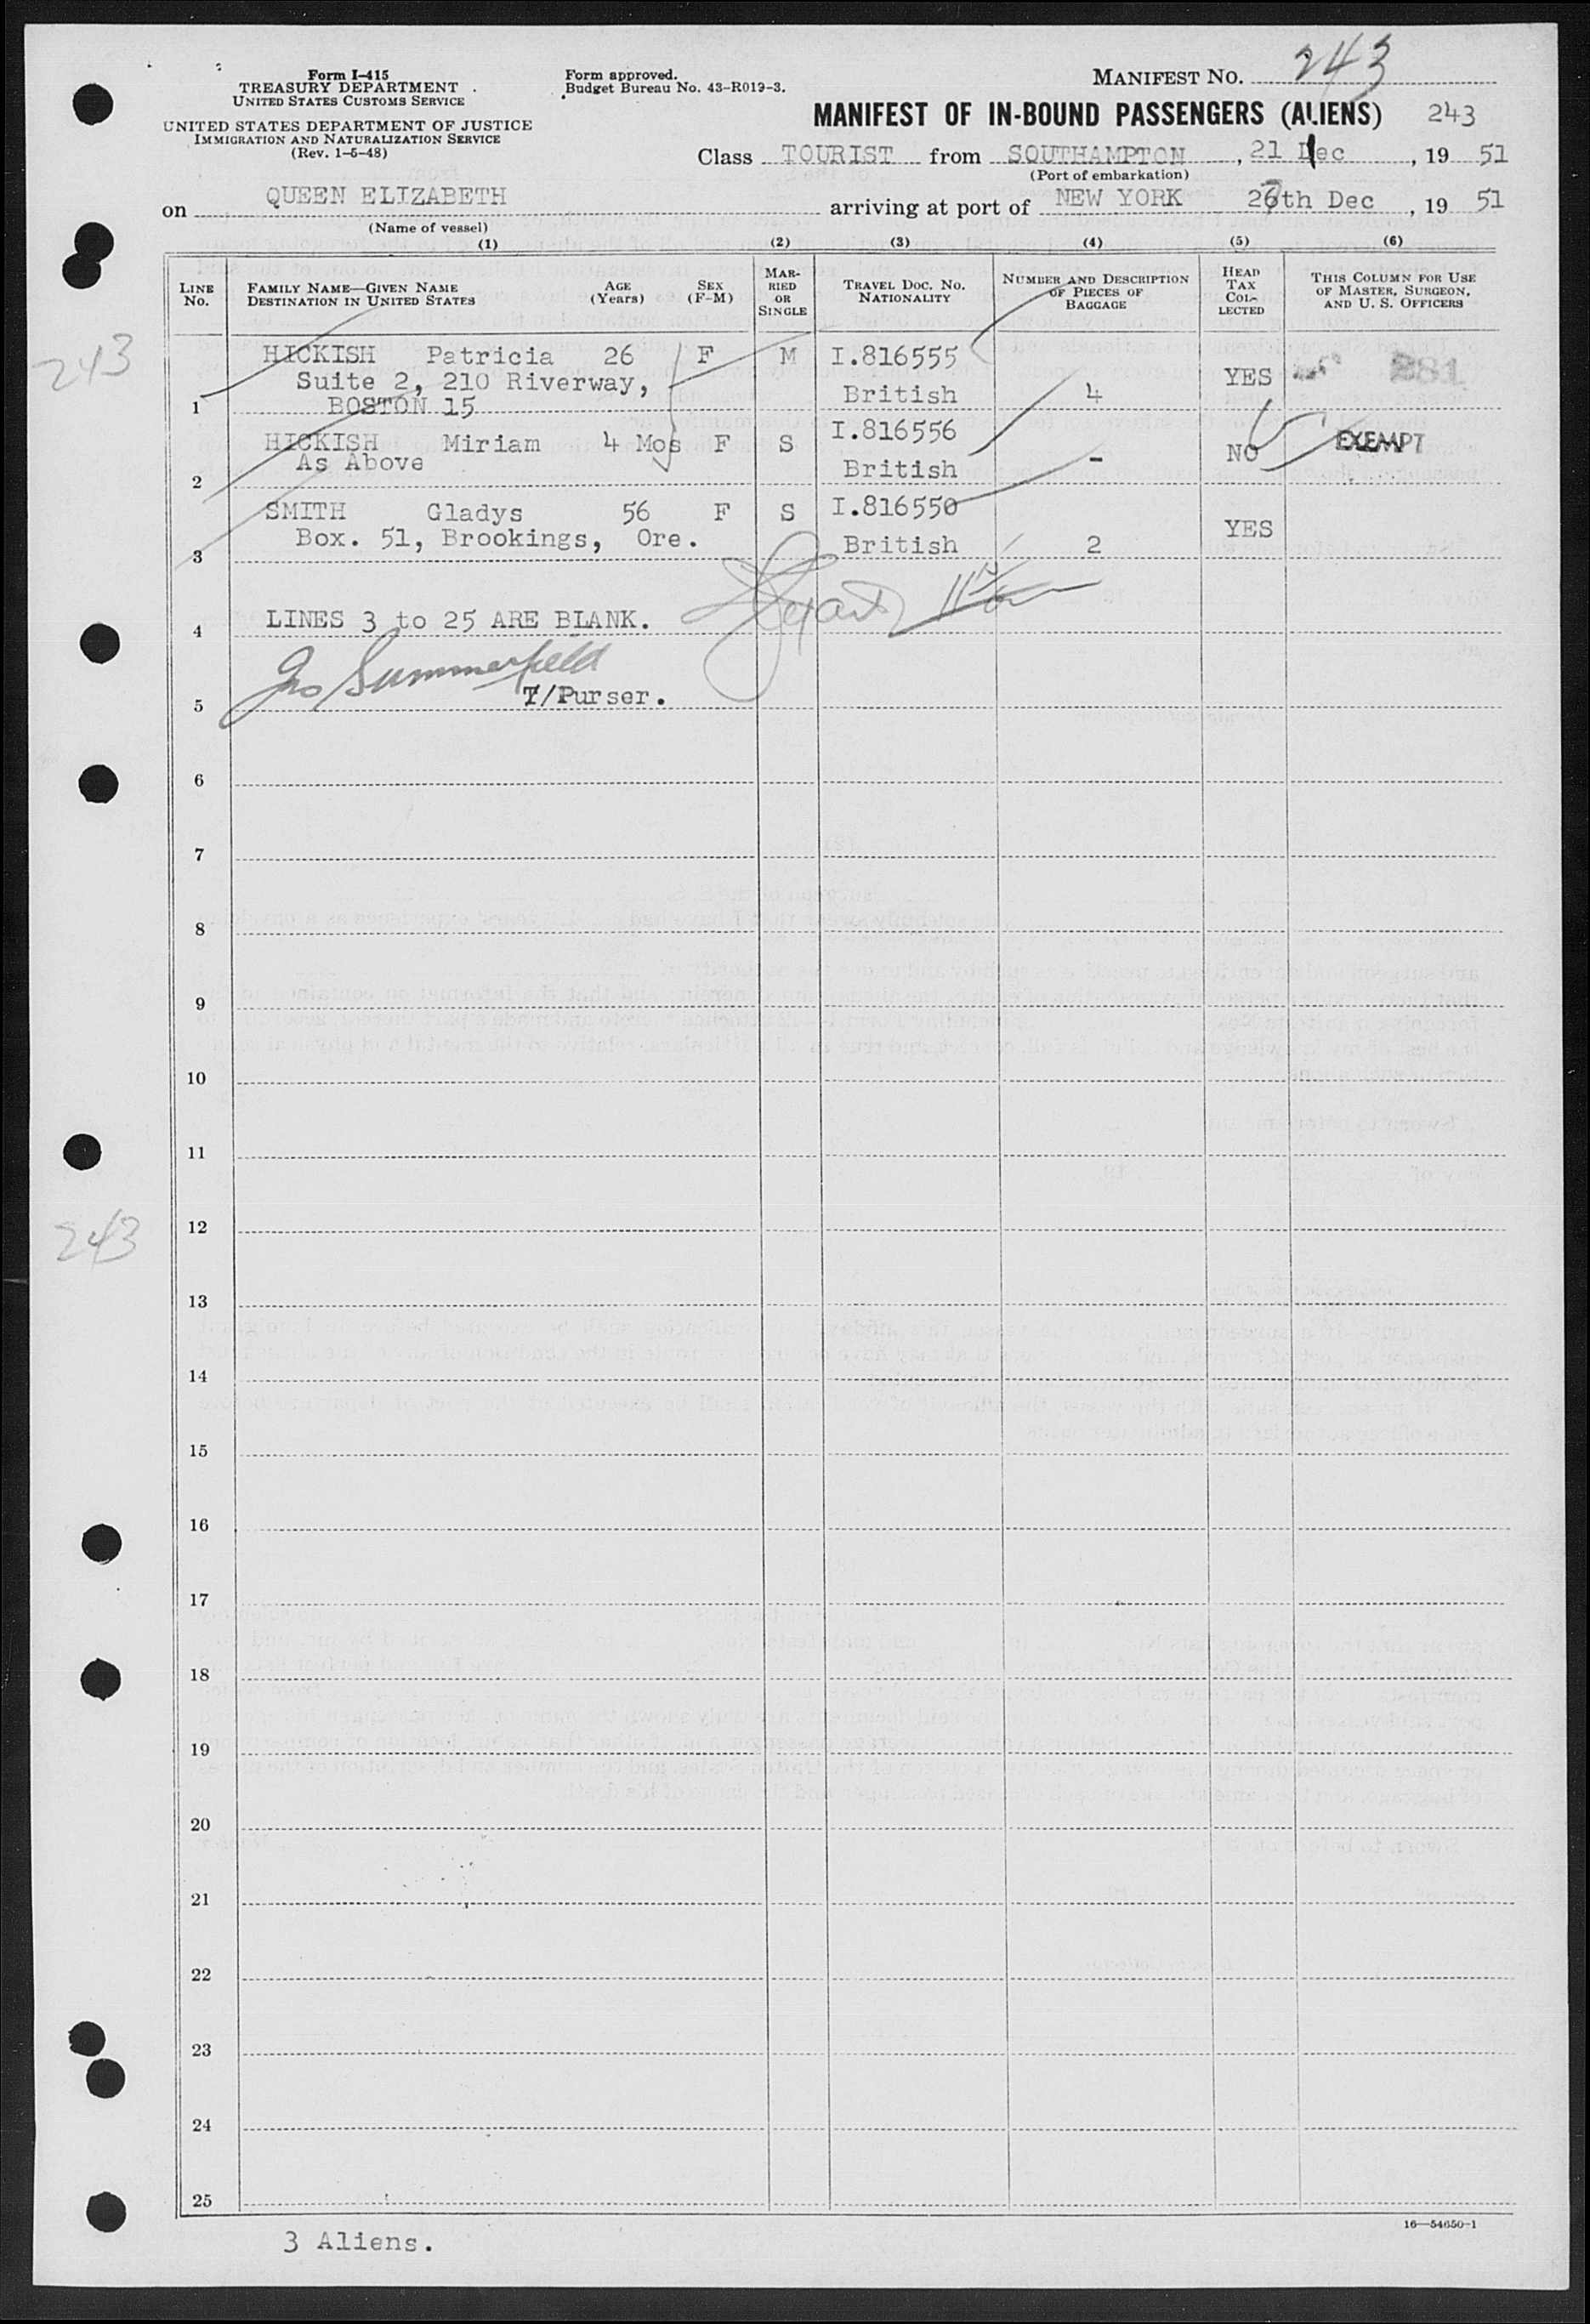 Form I-415
TREASURY DEPARTMENT
UNITED STATES CUSTOMS SERVICE
UNITED STATES DEPARTMENT OF JUSTICE
IMMIGRATION AND NATURALIZATION SERVICE
(Rev. 1-5-48)
Form approved.
Budget Bureau No. 43-R019-3.
MANIFEST NO. 243
MANIFEST OF IN-BOUND PASSENGERS (ALIENS) 243
Class TOURIST from SOUTHAMPTON, 21 Dec, 19 51
(Port of embarkation)
on QUEEN ELIZABETH arriving at port of NEW YORK 26th Dec, 19 51
(Name of vessel)
(1) (2) (3) (4) (5) (6)
LINE No. FAMILY NAME—GIVEN NAME DESTINATION IN UNITED STATES AGE (Years) SEX (F-M) MARRIED OR SINGLE TRAVEL DOC. NO. NATIONALITY NUMBER AND DESCRIPTION OF PIECES OF BAGGAGE HEAD TAX COLLECTED THIS COLUMN FOR USE OF MASTER, SURGEON, AND U. S. OFFICERS
243
HICKISH Patricia 26 F M I.816555
Suite 2, 210 Riverway, British 4 YES 281
1 BOSTON 15
HICKISH Miriam 4 Mos F S I.816556 NO EXEMPT
As Above British -
2
SMITH Gladys 56 F S I.816550 YES
Box. 51, Brookings, Ore. British 2
3
4 LINES 3 to 25 ARE BLANK.
Jno Summerfield
5 T/Purser.
6
7
8
9
10
11
12
243
13
14
15
16
17
18
19
20
21
22
23
24
25
16—54650-1
3 Aliens.